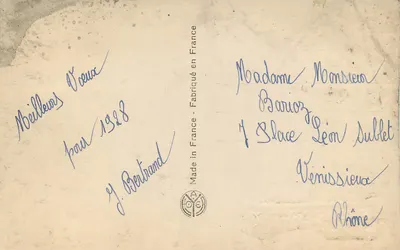 Meilleurs Vœux
pour 1928
J. Bertrand
Made in France - Fabriqué en France
Madame Monsieur
Barioz
7 Place Léon Sublet
Vénissieux
Rhône